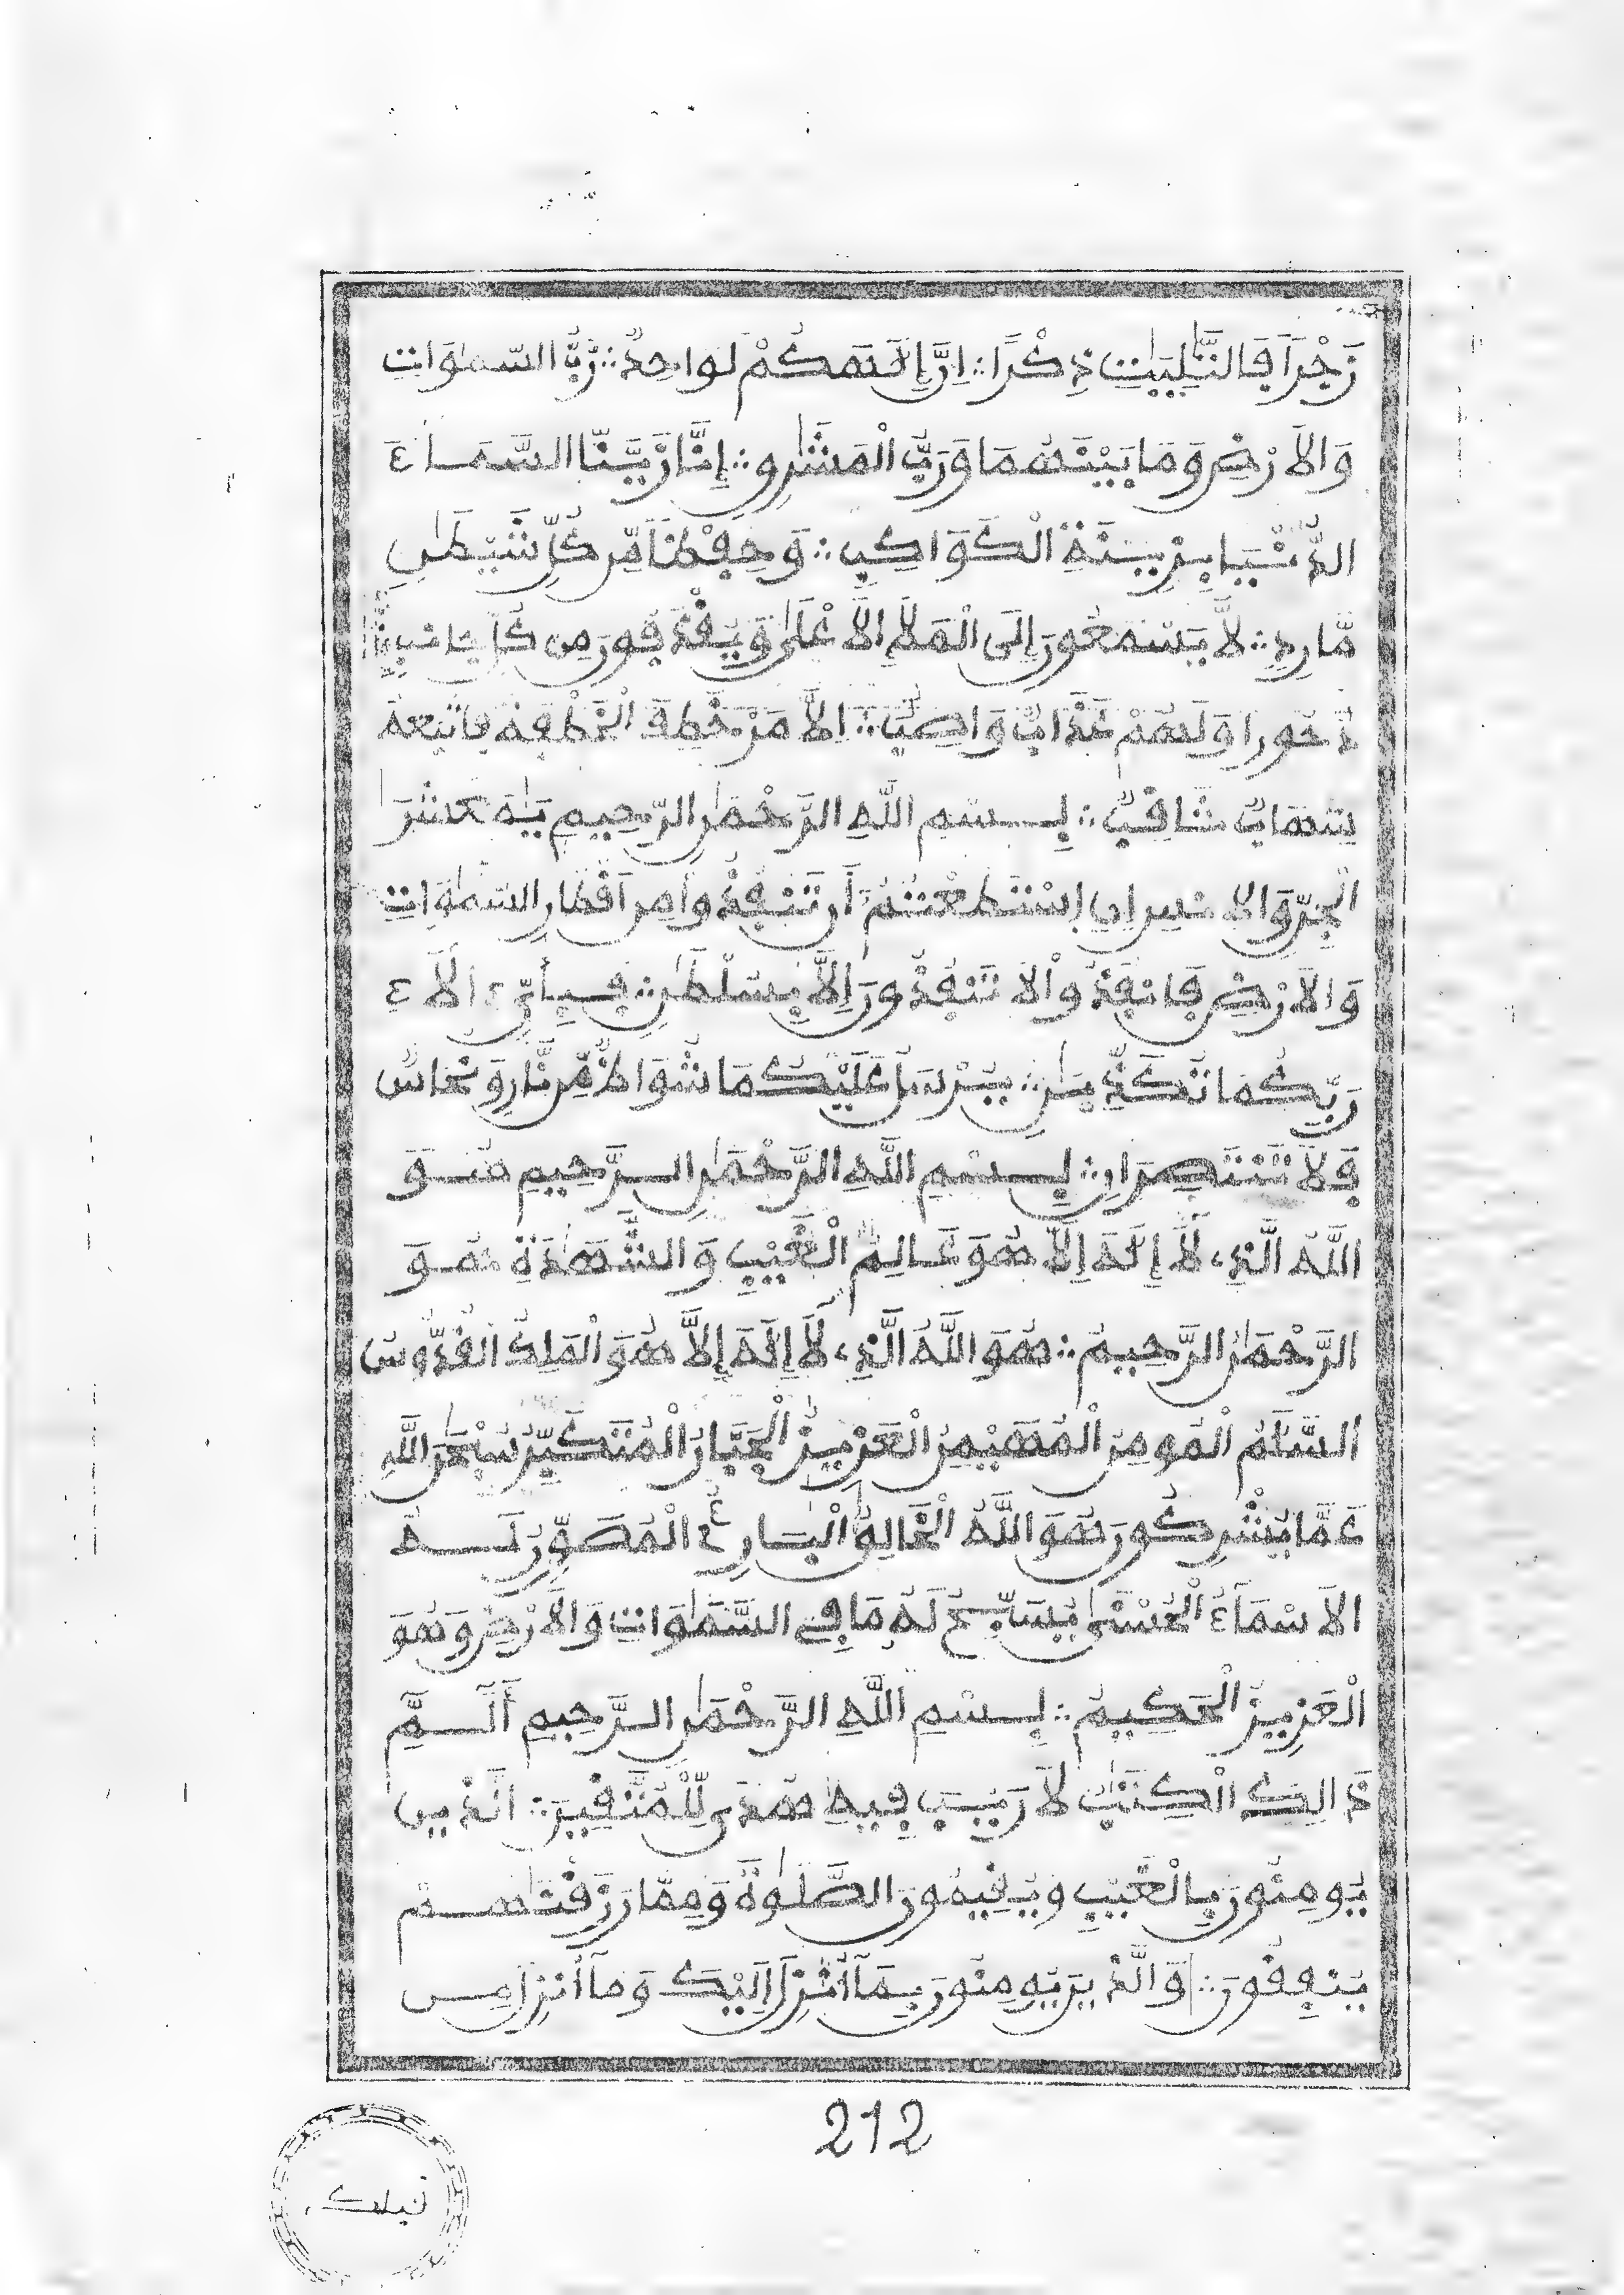 زَجْرًا فَالتَّٰلِيَٰتِ ذِكْرًا ∴ اِنَّ إِلَٰهَكُمْ لَوَاحِدٌ ∴ رَّبُّ السَّمَٰوَاتِ
وَالَارْضِ وَمَا بَيْنَهُمَا وَرَبُّ الْمَشَٰرِقِ ∴ إِنَّا زَيَّنَّا السَّمَاءَ
الدُّنْيَا بِزِينَةِ الْكَوَاكِبِ ∴ وَحِفْظًا مِّن كُلِّ شَيْطَٰنٍ
مَّارِدٍ ∴ لاَّ يَسْمَعُونَ إِلَى الْمَلَإِ الَاعْلَىٰ وَيُقْذَفُونَ مِن كُلِّ جَانِبٍ
دُحُورًا وَلَهُمْ عَذَابٌ وَاصِبٌ ∴ اِلاَّ مَنْ خَطِفَ الْخَطْفَةَ فَاتْبَعَهُ
شِهَابٌ ثَاقِبٌ ∴ بِسْمِ اللَّهِ الرَّحْمَٰنِ الرَّحِيمِ يَٰمَعْشَرَ
الْجِنِّ وَالِانسِ إِنِ اِسْتَطَعْتُمُ أَن تَنفُذُوا مِنَ اَقْطَارِ السَّمَٰوَاتِ
وَالَارْضِ فَانفُذُوا لَا تَنفُذُونَ إِلاَّ بِسُلْطَٰنٍ ∴ فَبِأَيِّ ءَالَاءِ
رَبِّكُمَا تُكَذِّبَٰنِ ∴ يُرْسَلُ عَلَيْكُمَا شُوَاظٌ مِّن نَّارٍ وَنُحَاسٌ
فَلَا تَنتَصِرَانِ ∴ بِسْمِ اللَّهِ الرَّحْمَٰنِ الرَّحِيمِ هُوَ
اللَّهُ الَّذِي لَا إِلَٰهَ إِلاَّ هُوَ عَالِمُ الْغَيْبِ وَالشَّهَٰدَةِ هُوَ
الرَّحْمَٰنُ الرَّحِيمُ ∴ هُوَ اللَّهُ الَّذِي لَا إِلَٰهَ إِلاَّ هُوَ الْمَلِكُ الْقُدُّوسُ
السَّلَٰمُ الْمُومِنُ الْمُهَيْمِنُ الْعَزِيزُ الْجَبَّارُ الْمُتَكَبِّرُ سُبْحَٰنَ اللَّهِ
عَمَّا يُشْرِكُونَ هُوَ اللَّهُ الْخَٰلِقُ الْبَارِئُ الْمُصَوِّرُ لَهُ
الَاسْمَاءُ الْحُسْنَىٰ يُسَبِّحُ لَهُ مَا فِي السَّمَٰوَاتِ وَالَارْضِ وَهُوَ
الْعَزِيزُ الْحَكِيمُ ∴ بِسْمِ اللَّهِ الرَّحْمَٰنِ الرَّحِيمِ أَلَمِّ
ذَالِكَ الْكِتَٰبُ لَا رَيْبَ فِيهِ هُدًى لِّلْمُتَّقِينَ ∴ الَّذِينَ
يُومِنُونَ بِالْغَيْبِ وَيُقِيمُونَ الصَّلَوٰةَ وَمِمَّا رَزَقْنَٰهُمْ
يُنفِقُونَ ∴ وَالَّذِينَ يُومِنُونَ بِمَا أُنزِلَ إِلَيْكَ وَمَا أُنزِلَ مِن
212